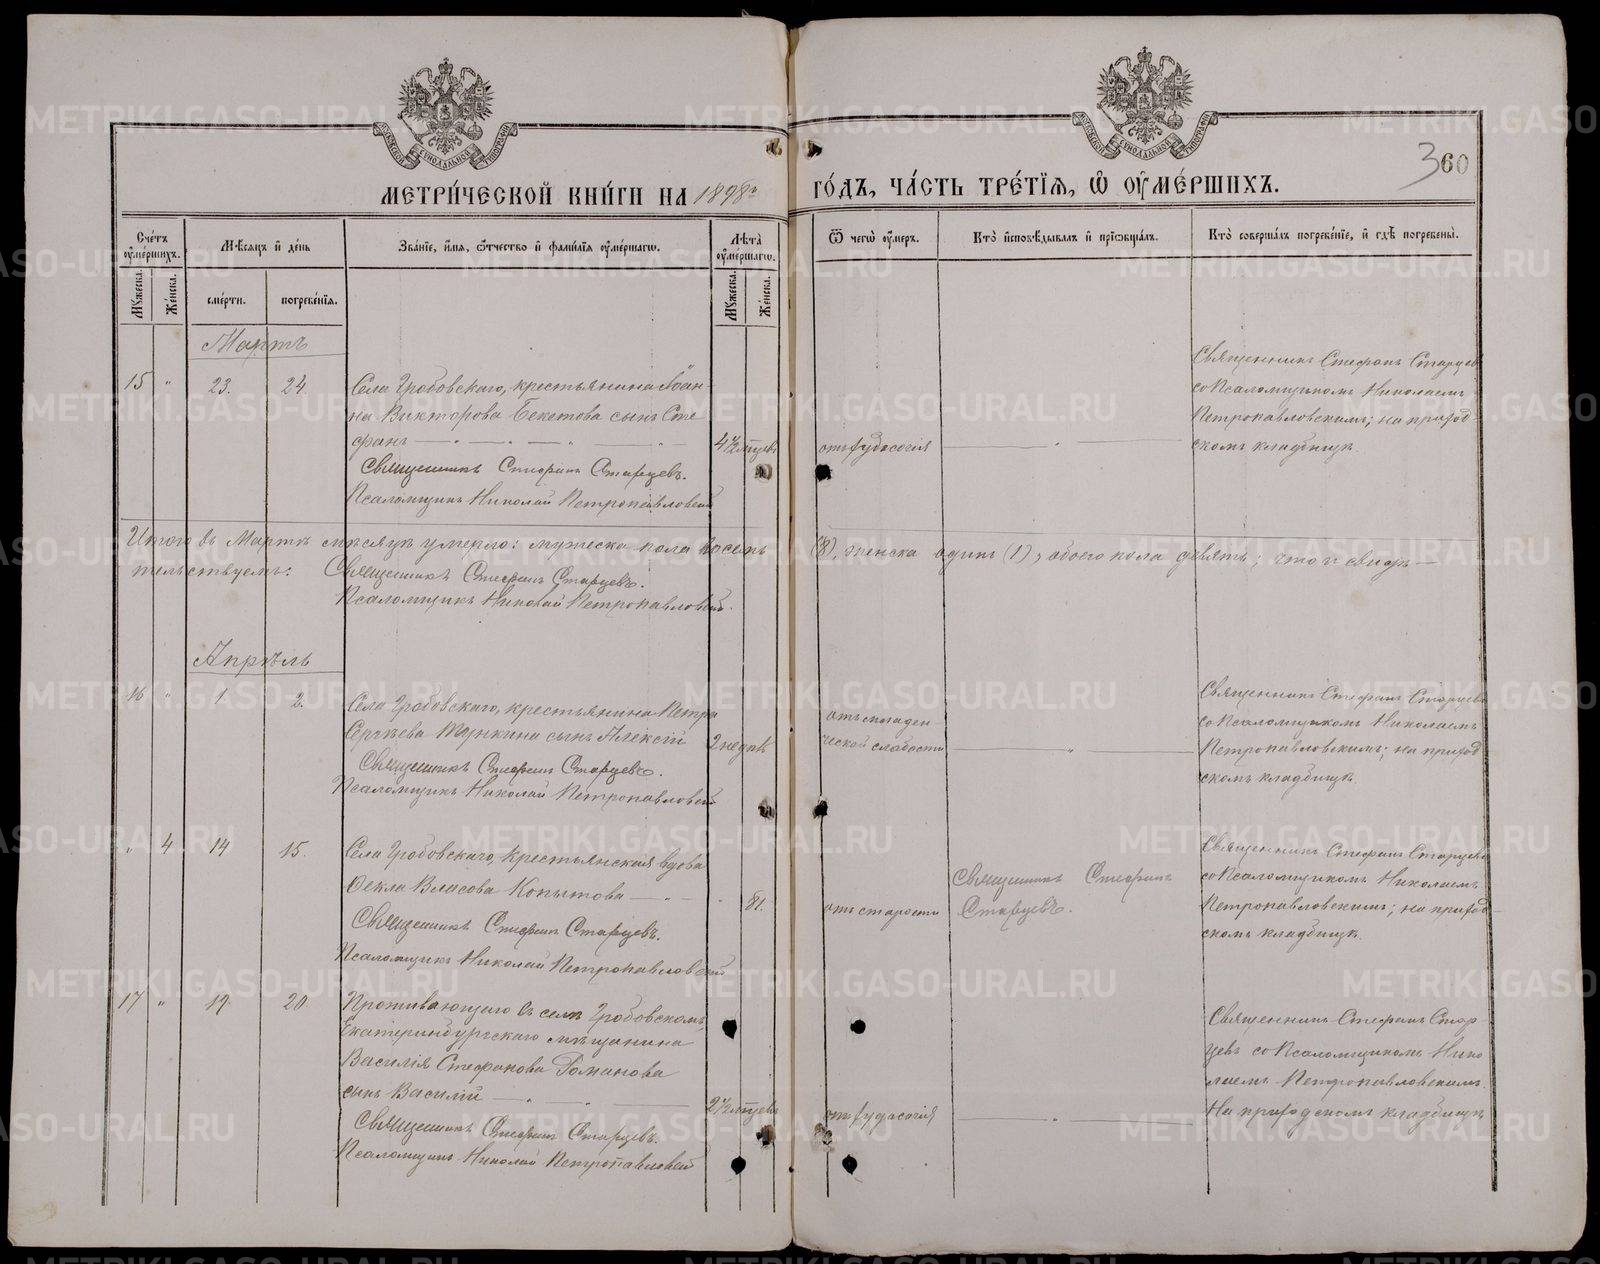 МЕТРИ́ЧЕСКОЙ КНИ́ГИ НА 1898й ГО́ДЪ, ЧА́СТЬ ТРЕ́ТІѦ, Ѡ ОУМЕ́РШИХЪ.
360
МОСКОВСКОЙ СѴНОДАЛЬНОЙ ТИПОГРАФІИ
МОСКОВСКОЙ СѴНОДАЛЬНОЙ ТИПОГРАФІИ
Сче́тъ оуме́ршихъ.
Мꙋжеска.
Же́нска.
Мѣ́сѧцъ и҆ де́нь
сме́рти.
погребе́нїѧ.
Зва́нїе, и҆́мѧ, ѻ҆́тчество и҆ фами́лїѧ оуме́ршагѡ.
Лѣ́та оуме́ршагѡ.
Мꙋжеска.
Же́нска.
Ѿ чегѡ̀ оу́меръ.
Кто̀ и҆сповѣ́дывалъ и҆ прїѡбща́лъ.
Кто̀ соверша́лъ погребе́нїе, и҆ гдѣ̀ погребены̀.
Мартъ
15 " 23. 24. Села Гробовскаго, крестьянина Іоан-
на Викторова Бекетова сынъ Сте
фанъ
4½ мѣсяцев
Священникъ Стефанъ Старцевъ.
Псаломщикъ Николай Петропавловскій
Священникъ Стефанъ Старцевъ
со Псаломщикомъ Николаемъ
Петропавловскимъ; на приход
скомъ кладбищѣ.
Итого въ Мартѣ мѣсяцѣ умерло: мужеска пола восемь (8), женска одинъ (1), обоего пола девять; что и свидѣ-
тельствуемъ: Священникъ Стефанъ Старцевъ.
Псаломщикъ Николай Петропавловскій.
Апрѣль
16 " 1. 2. Села Гробовскаго, крестьянина Петра
Сергѣева сынъ Алексій
2 недѣль
Священникъ Стефанъ Старцевъ.
Псаломщикъ Николай Петропавловскій
отъ младен
ческой слабости
Священникъ Стефанъ Старцевъ
со Псаломщикомъ Николаемъ
Петропавловскимъ; на приход
скомъ кладбищѣ
" 4 14 15. Села Гробовскаго, крестьянская вдова
Ѳекла Власова Копытова
81.
Священникъ Стефанъ Старцевъ.
Псаломщикъ Николай Петропавловскій
отъ старости
Священникъ Стефанъ
Старцевъ.
Священникъ Стефанъ Старцевъ
со Псаломщикомъ Николаемъ
Петропавловскимъ; на приход-
скомъ кладбищѣ.
17 " 19. 20. Проживающаго въ селѣ Гробовскомъ,
Екатеринбургскаго мѣщанина
Василія Стефанова Романова
сынъ Василій
2½ мѣсяцев
Священникъ Стефанъ Старцевъ.
Псаломщикъ Николай Петропавловскій
Священникъ Стефанъ Стар-
цевъ со Псаломщикомъ Нико
лаемъ Петропавловскимъ.
На приходскомъ кладбищѣ
METRIKI.GASO-URAL.RU